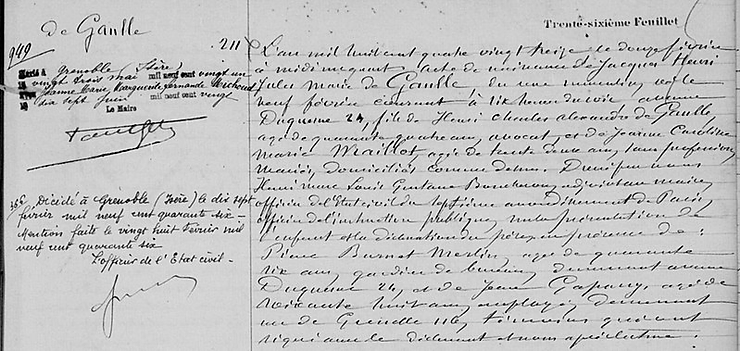 Trente-sixième Feuillet
de Gaulle
949
211
Marié à Grenoble (Isère)
le vingt trois mai mil neuf cent vingt un
Jeanne Marie Marguerite Fernande Michoud
mil neuf cent vingt
Le Maire
Décédé à Grenoble (Isère) le dix sept
février mil neuf cent quarante six –
Mention faite le vingt huit Février mil
neuf cent quarante six
L'officier de l'Etat civil –
L'an mil huit cent quatre vingt treize le douze février
à midi acte de naissance de Jacques Henri
Jules Marie de Gaulle, du sexe masculin, né le
neuf février courant à six heures du soir, avenue
Duquesne 24, fils de Henri Charles Alexandre de Gaulle,
âgé de quarante quatre ans, avocat, et de Jeanne Caroline
Marie Maillot, âgée de trente deux ans, sans profession,
mariés, domiciliés comme dessus. Dressé par nous
Louis Gustave adjoint au maire,
officier de l'Etat civil du septième arrondissement de Paris,
officier de l'instruction publique, sur la présentation de
l'enfant et la déclaration du père, en présence de :
Pierre Burnet Merlin, âgé de quarante
six ans, gardien de bureau, demeurant avenue
Duquesne 24, et de Jean Papany, âgé de
soixante huit ans, employé, demeurant
rue de Grenelle 116, témoins qui ont
signé avec le déclarant et nous après lecture.